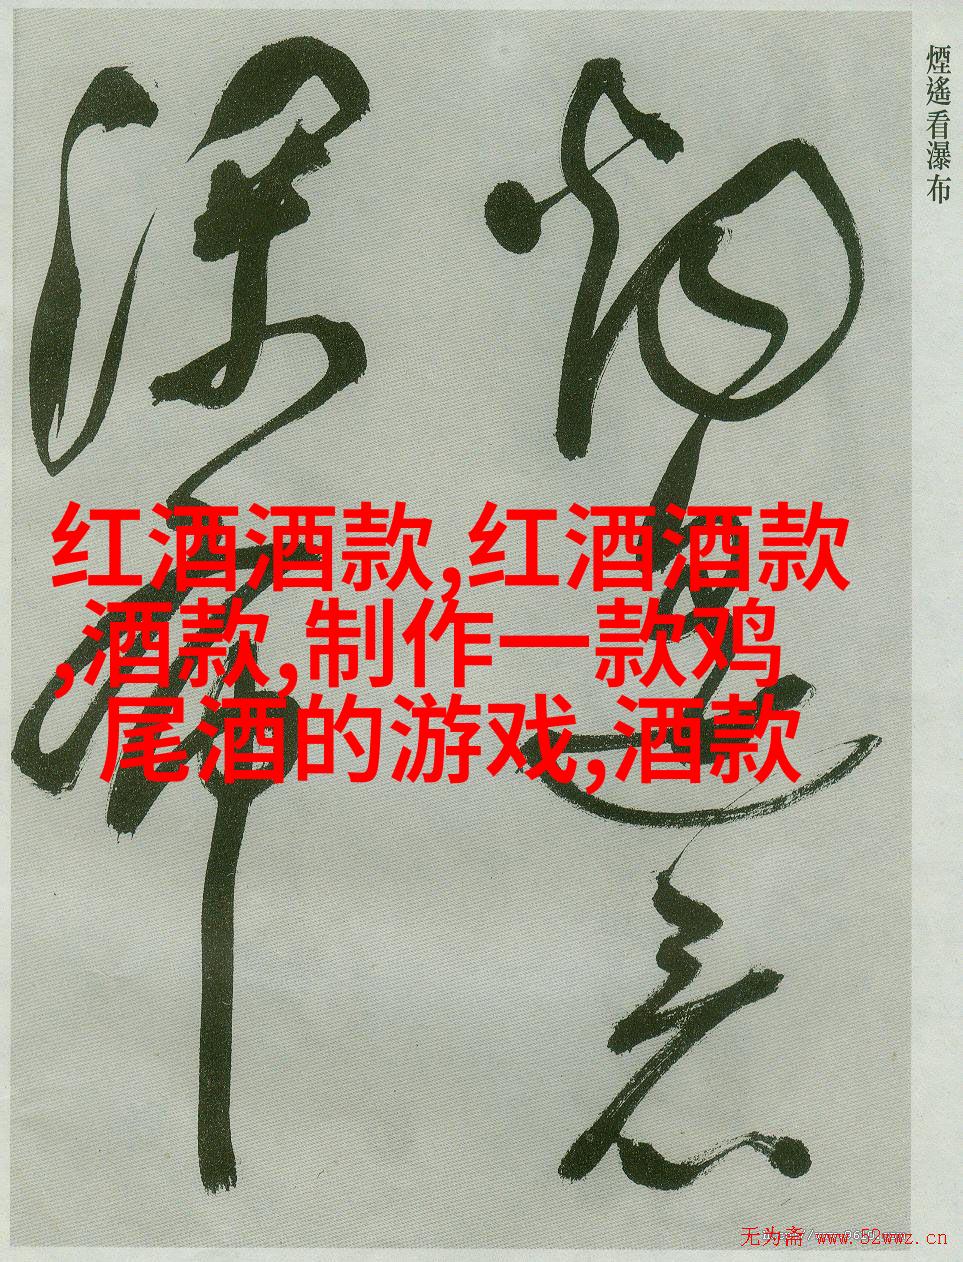 煙遙看瀑布
煙遙看
瀑布
红酒酒款,红酒酒款
,酒款,制作一款鸡
尾酒的游戏,酒款
无为斋 www.52wwz.cn